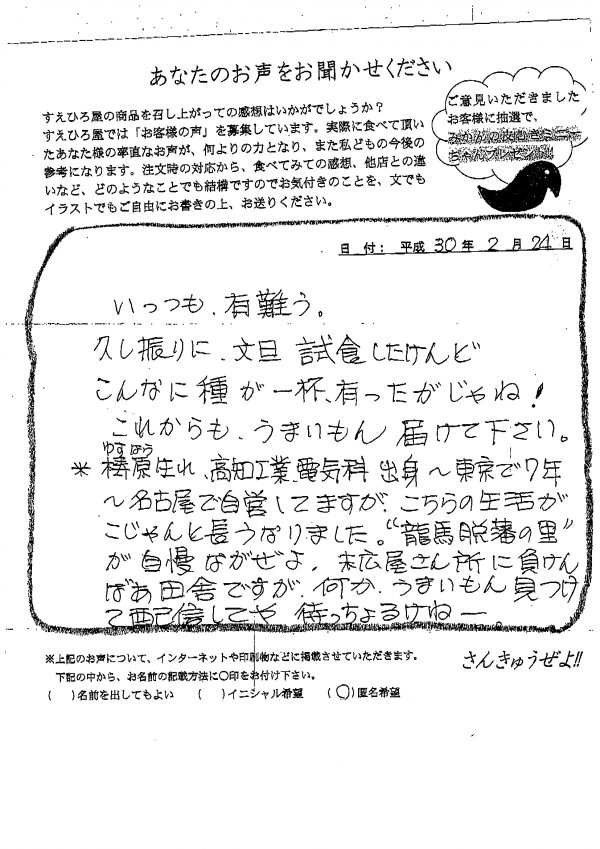 あなたのお声をお聞かせください
すえひろ屋の商品を召し上がっての感想はいかがでしょうか？
すえひろ屋では「お客様の声」を募集しています。実際に食べて頂い
たあなた様の率直なお声が、何よりの力となり、また私どもの今後の
参考になります。注文時の対応から、食べてみての感想、他店との違
いなど、どのようなことでも結構ですのでお気付きのことを、文でも
イラストでもご自由にお書きの上、お送りください。
ご意見いただきました
お客様に抽選で、
日 付： 平成 30 年 2 月 24 日
いっつも、有難う。
久し振りに、文旦 試食したけんど
こんなに種が一杯、有ったがじゃね！
これからも、うまいもん 届けて下さい。
ゆすはら
＊ 梼原生れ、高知工業、電気科 出身～東京で7年
～名古屋で自営してますが、こちらの生活が
こじゃんと長うなりました。“龍馬脱藩の里”
が自慢ながぜよ、末広屋さん所に負けん
ばあ田舎ですが、何か、うまいもん見つけ
て配信してや 待っちょるけねー
※上記のお声について、インターネットや印刷物などに掲載させていただきます。
下記の中から、お名前の記載方法に〇印をお付け下さい。
（ ）名前を出してもよい （ ）イニシャル希望 （〇）匿名希望
さんきゅうぜよ!!